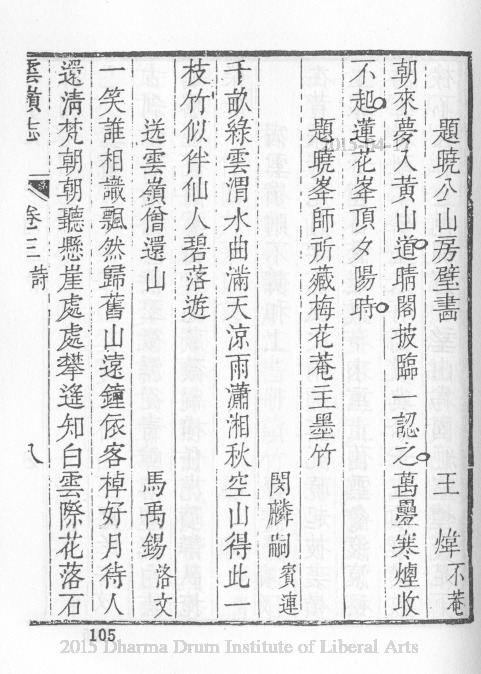 題曉公山房壁畵 王煒不菴
朝來夢入黃山道。晴閣披臨一認之。萬疊寒煙收
不起。蓮花峯頂夕陽時。
題曉峯師所藏梅花菴主墨竹
閔麟嗣賓連
千畝綠雲渭水曲滿天涼雨瀟湘秋空山得此一
枝竹似伴仙人碧落遊
送雲嶺僧還山 馬禹錫洛文
一笑誰相識飄然歸舊山遠鐘依客棹好月待人
還清梵朝朝聽懸崖處處攀遙知白雲際花落石
雲嶺志 卷三 詩 八
105
2015-04-
2015 Dharma Drum Institute of Liberal Arts